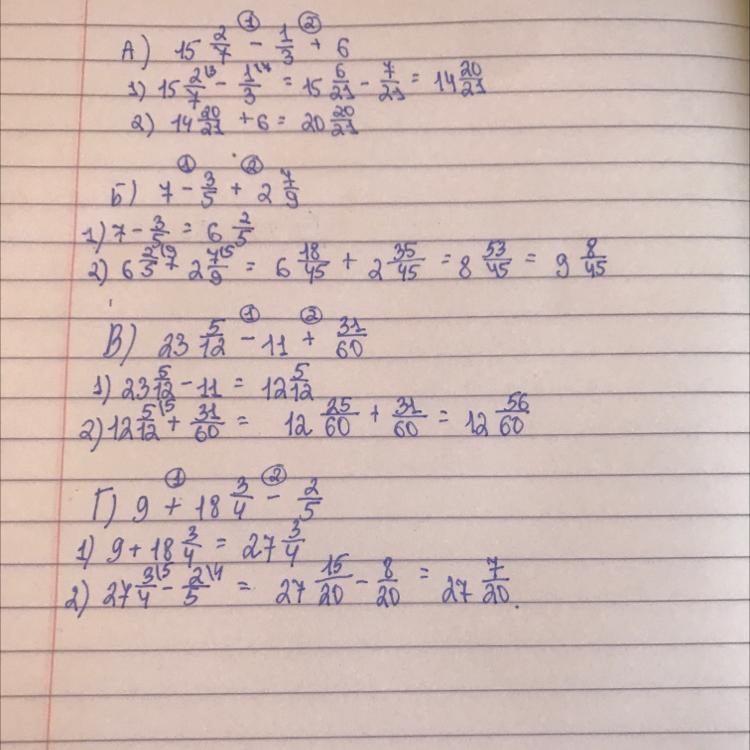 ① ②
А) 15 2/7 - 1/3 + 6
1) 15 2\3/7 - 1\7/3 = 15 6/21 - 7/21 = 14 20/21
2) 14 20/21 + 6 = 20 20/21
① ②
Б) 7 - 3/5 + 2 7/9
1) 7 - 3/5 = 6 2/5
2) 6 2\9/5 + 2 7\5/9 = 6 18/45 + 2 35/45 = 8 53/45 = 9 8/45
① ②
В) 23 5/12 - 11 + 31/60
1) 23 5/12 - 11 = 12 5/12
2) 12 5\5/12 + 31/60 = 12 25/60 + 31/60 = 12 56/60
① ②
Г) 9 + 18 3/4 - 2/5
1) 9 + 18 3/4 = 27 3/4
2) 27 3\5/4 - 2\4/5 = 27 15/20 - 8/20 = 27 7/20.